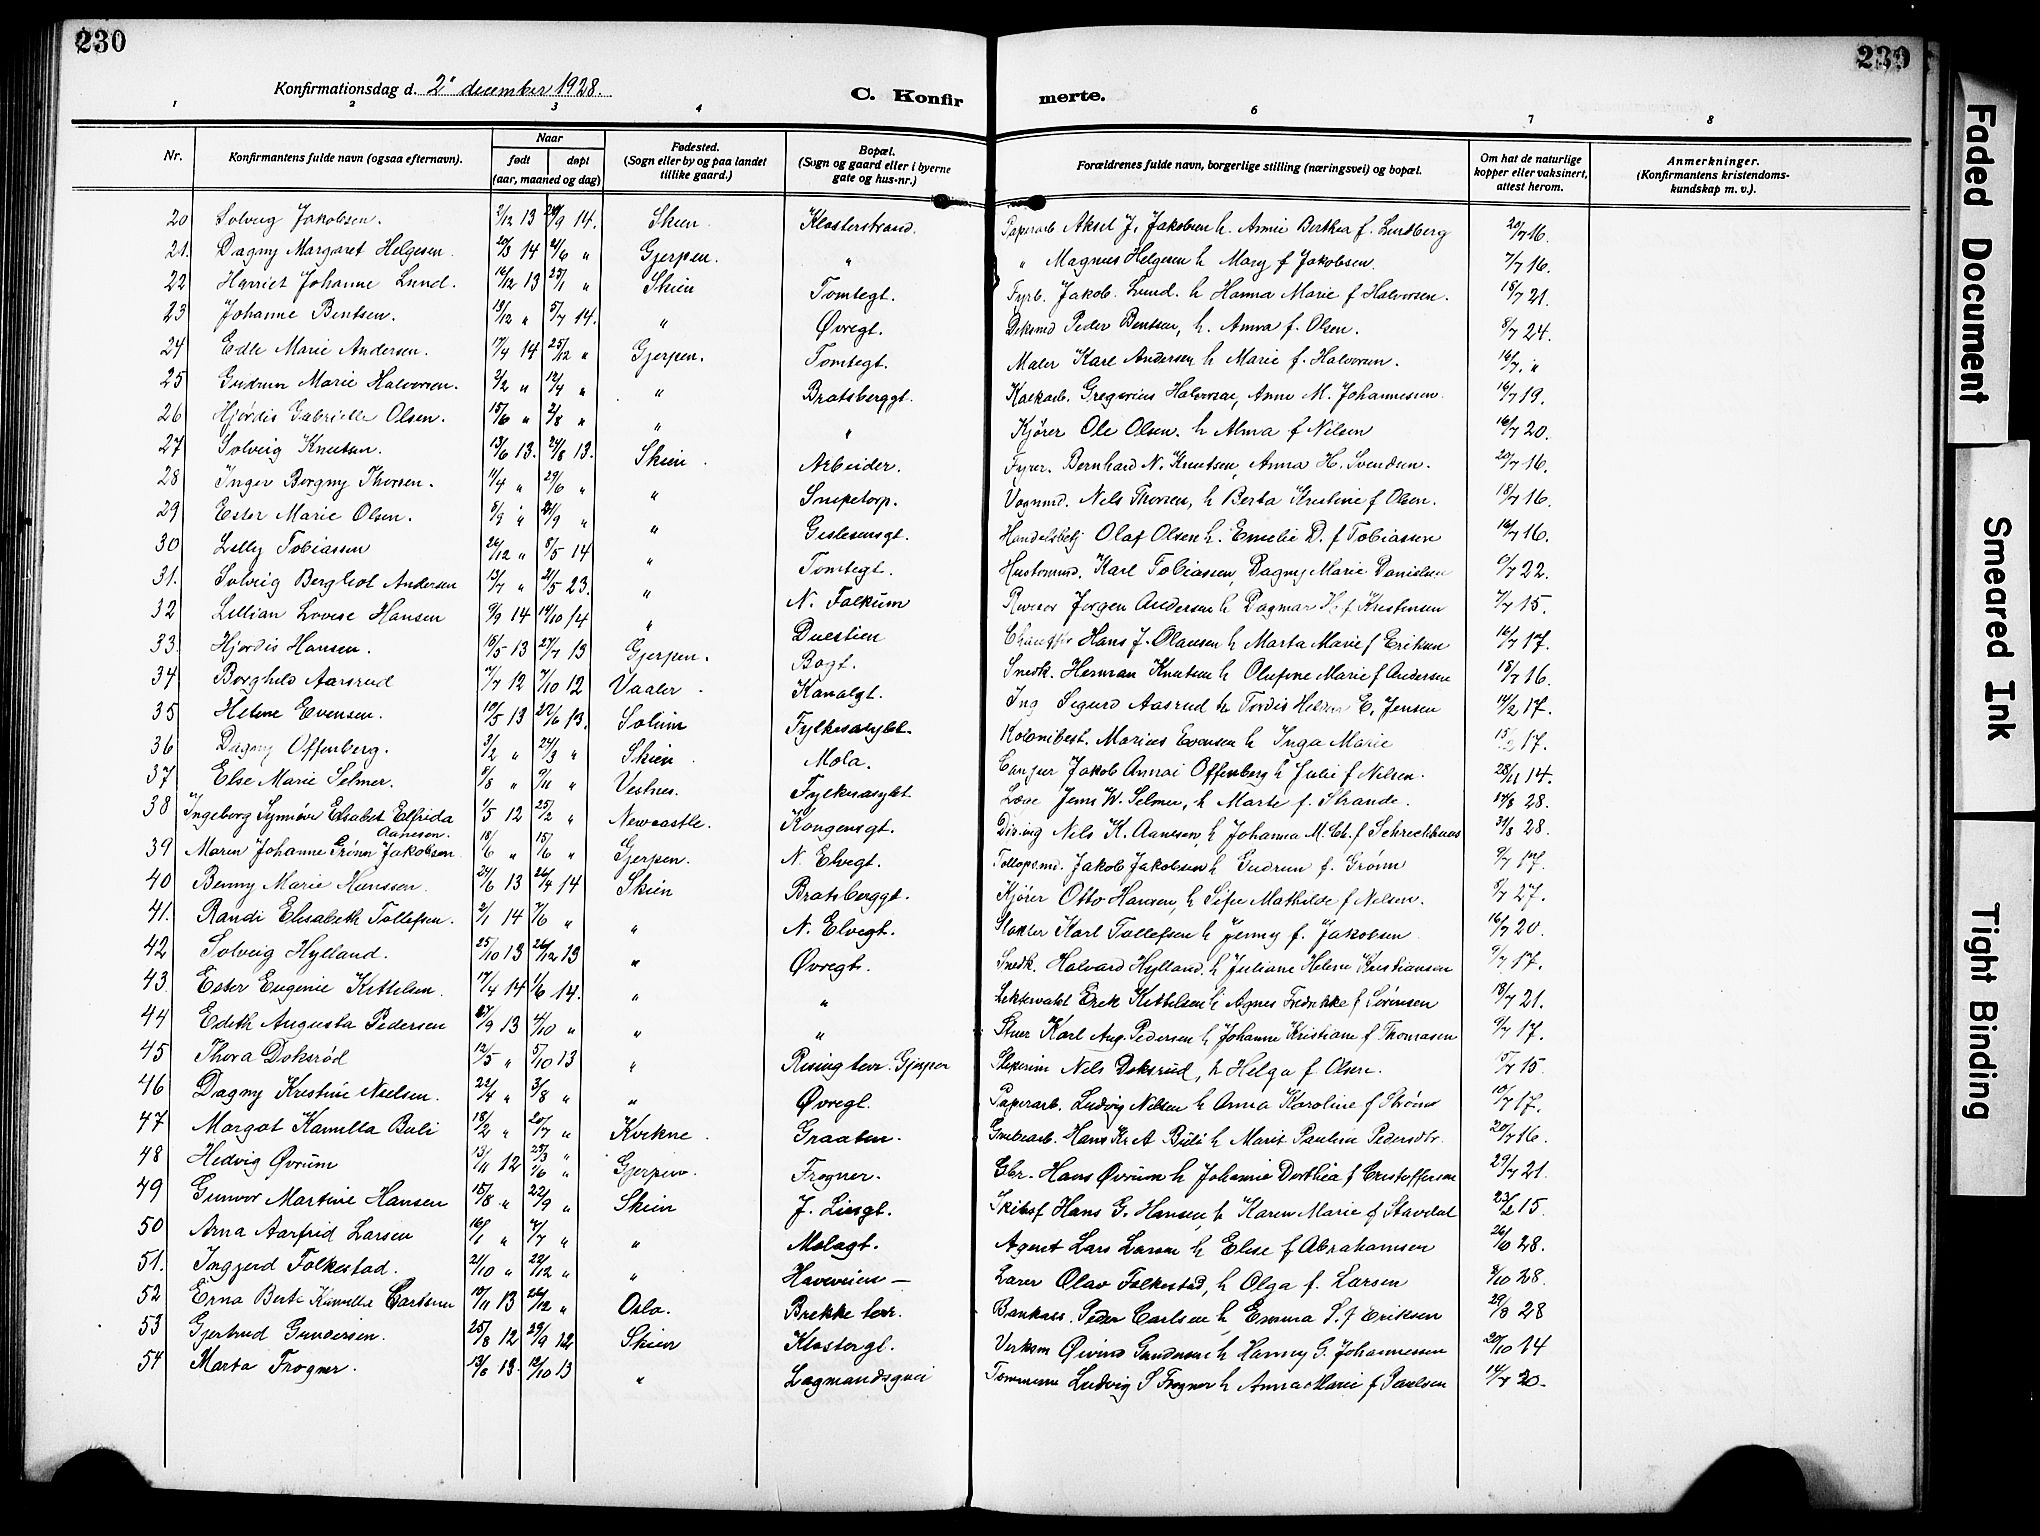 230
230
Konfirmationsdag d. 2' december 1928.
C. Konfir merte.
1 2 3 4 6 7 8
Nr.
Konfirmantens fulde navn (ogsaa efternavn).
Naar
født
døpt
(aar, maaned og dag)
Fødested.
(Sogn eller by og paa landet
tillike gaard.)
Bopæl.
(Sogn og gaard eller i byerne
gate og hus-nr.)
Forældrenes fulde navn, borgerlige stilling (næringsvei) og bopæl.
Om hat de naturlige
kopper eller vaksinert,
attest herom.
Anmerkninger.
(Konfirmantens kristendoms-
kundskap m. v.).
20 Solveig Jakobsen. 2/12 13 14. Skien Klosterstrand. Paperarb Aksel J. Jakobsen h. Annie Berthea f. Lundberg 20/7 16.
21. Dagny Margaret Helgesen 20/3 14 2/6 " Gjerpen. " " Magnus Helgesen h Mary f Jakobsen. 7/7 16.
22 Harriet Johanne Lund. 16/12 13 25/1 " Skien Tomtegt. Fyrb. Jakob Lund. h Hanna Marie f Halvorsen. 18/7 21.
23 Johanne Bentsen. 13/12 " 5/7 14. " Øvregt. Peder Bentsen, h. Anna f. Olsen. 8/7 24.
24 Edle Marie Andersen. 17/4 14 25/12 " Gjerpen. Tomtegt. Maler Karl Andersen h Marie f. Halvorsen. 16/7 "
25 Gudrun Marie Halvorsen. 2/2 " 12/4 " " Bratsberggt. Gregorius Halvorsen, Anne M. Johannessen. 16/7 19.
26 Hjørdis Gabrielle Olsen. 15/6 " 2/8 " " " Kjører Ole Olsen. h Alma f Nilsen 16/7 20.
27 Solveig Knutsen. 13/6 13. 24/8 13. Skien. Arbeider. Fyrer. Bernhard N. Knutsen, Anna H. Svendsen. 20/7 16.
28 Inger Borgny Thorsen. 11/4 " 29/6 " " Snipetorp. Vognmd. Nils Thorsen, h Berta Kristine f Olsen. 18/7 16.
29 Ester Marie Olsen. 5/9 " 21/9 " " Gislesensgt. Handelsbetj Olaf Olsen h. Emelie D. f Tobiassen 16/7 16.
30 Lilly Tobiassen 26/12 " 8/5 14 " Tomtegt. Karl Tobiassen, Dagny Marie Danielsen 22.
31. Solveig Bergliot Andersen 13/7 " 2/5 23. " N. Falkum Revisor Jørgen Andersen h Dagmar f Kristensen 7/7 15.
32 Lillian Lovise Hansen 9/9 14 14/10 14 " Duestien Hans J. Olausen h Marta Marie f Eriksen 16/7 17.
33. Hjørdis Hansen. 15/5 13 27/7 13 Gjerpen. Bogt. Snedk. Herman Knutsen h Olufine Marie f Andersen 15/7 16.
34 Borghild Aarsrud 7/7 12 7/10 12 Vaaler. Kanalgt. Ing Sigurd Aasrud h Tordis E. Jensen 14/2 17.
35 Helene Evensen. 10/5 13 22/6 13. Solum Fylkesasylet. Kolonibest. Marius Evensen h Inga Marie 17.
36 Dagny Offenberg. 3/2 " 24/3 " Skien Mola. Jakob Annai Offenberg h Julie f Nilsen. 28/11 14.
37 Else Marie Selmer. 5/8 " 9/11 " Vestnes. Fylkesasylet Jens W. Selmer, h Marte f. Strande. 14/8 28.
38 Ingeborg Synnøve Elisabet Elfrida
Aanesen. 1/5 12 25/2 " Newcastle. Kongensgt. Nils K. Aanesen, h Johanna M. Ch. f Schreckhaas 31/8 28.
39 Maren Johanne Grönn Jakobsen 18/6 " 15/6 " Gjerpen. N. Elvegt. Tollopsmd. Jakob Jakobsen h Gudrun f. Grönn 9/7 17.
40 Benny Marie Hanssen. 24/6 13 26/4 14 Skien Bratsberggt. Kjører Otto Hansen, h Mathilde f Nilsen. 8/7 27.
41. Randi Elisabeth Tollefsen. 2/1 14 7/6 " " N. Elvegt. Slakter Karl Tollefsen h Jenny f. Jakobsen 16/7 20.
42 Solveig Hylland. 25/10 13 26/12 13 " Øvregt. Snedk. Halvard Hylland, h Juliane Helene Kristiansen 9/7 17.
43. Ester Eugenie Kittelsen. 17/4 14 1/6 14. " " Erik Kittelsen h Agnes Fredrikke f Sörensen 18/7 21.
44 Edith Augusta Pedersen 27/9 13 4/10 " " " Stuer Karl Aug. Pedersen h Johanne Kristiane f Thomasen 9/7 17.
45 Thora Doksrød 12/5 " 5/10 13 " Rising terr. Gjerpen Nils Doksrud, h Helga f. Olsen. 5/7 15.
46 Dagny Kristine Nielsen. 22/4 " 3/8 " " Øvregt. Paperarb. Ludvig Nilsen h Anna Karoline f Strøm 10/7 17.
47 Margot Kamilla Buli 18/2 " 20/7 " Kvikne. Graaten. Grubearb. Hans Kr. A Büli h Marit Pauline Pedersdtr. 20/7 16.
48 Hedvig Øvrum 13/11 12 " Gjerpen. Frogner. Gbr. Hans Øvrum h Johanne Dorthea f Cristoffersen 29/7 21.
49 Gunvor Martine Hansen 15/8 " 22/9 " Skien J. Liesgt. Skibsf Hans G. Hansen, h Karen Marie f Stavdal 23/2 15.
50 Arna Aarfrid Larsen 16/1 " 4/7 " " Molagt. Agent Lars Larsen h Elise f Abrahamsen 26/10 28.
51. Ingjerd Folkestad. 21/10 " 22/12 " " Haveveien — Lærer Olav Folkestad, h Olga f. Larsen 8/10 28.
52 Erna Berte Kamilla Carlsen 17/11 13 26/12 " Oslo. Brekke terr. Bankass. Peder Carlsen h Emma S. f Eriksen 29/8 28
53 Gjertrud Gundersen. 25/8 12 29/9 12 Skien Klostergt. Verksm Øivind Gundersen h Hanny G. Johannessen 20/10 14
54 Marta Frogner. 13/6 13. 12/10 13 " Lagmandsgvei Ludvig S Frogner h Anna Marie f Paulsen 14/7 20.
Faded Document
Smeared Ink
Tight Binding